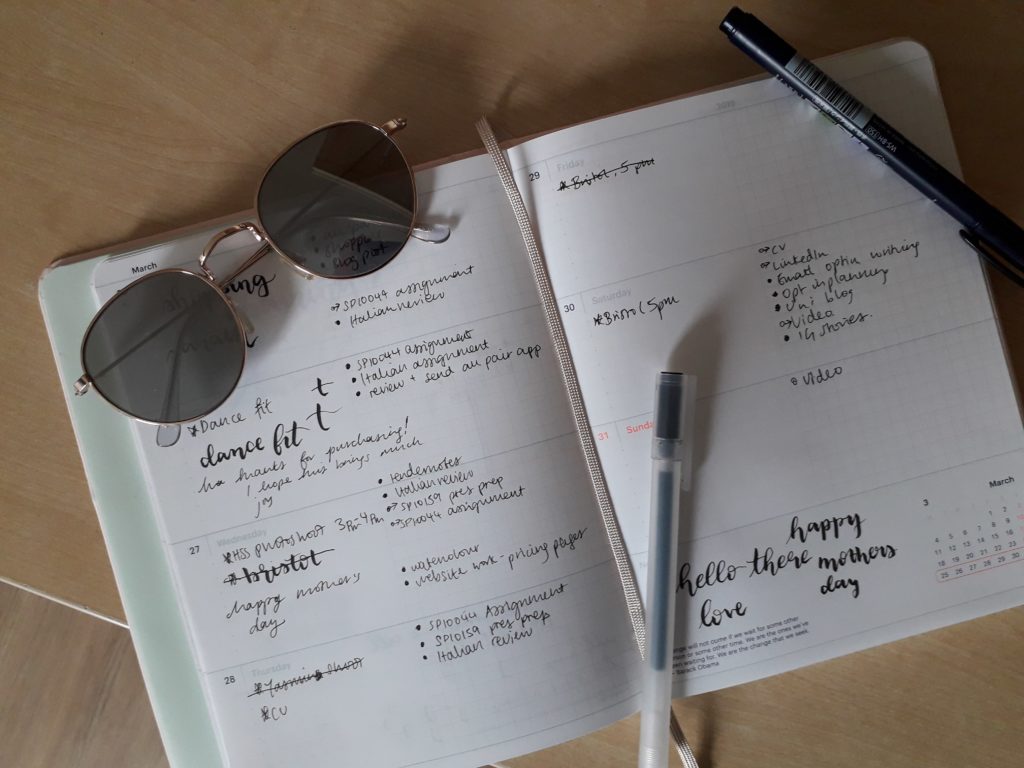 March
Blog post
⇒ SP10044 assignment
• Italian review
• SP10044 assignment
• Italian assignment
• review + send au pair app
t
t
*Dance fit
dance fit
thanks for purchasing!
I hope this brings much
joy
• Italian review
⇒ SP10159 pres prep
⇒ SP10044 assignment
27 Wednesday
*HSS photoshoot 3pm-4pm
*bristol
happy mother's
day
• website work - pricing pages
• SP10044 Assignment
• SP10159 pres prep
• Italian review
28 Thursday
*CV
2019
29 Friday
*Bristol, 5pm
30 Saturday
*Bristol 5pm
⇒ CV
⇒ LinkedIn
• Email optin writing
• Opt in planning
• Uni blog
⇒ Video
• IG stories.
• video
31 Sunday
hello there
love
happy
mothers
day
3 March
4 5 6 7 8 9
11 12 13 14 15 16
18 19 20 21 22 23
25 26 27 28 29 30
will not come if we wait for some other
or some other time. We are the ones we've
waiting for. We are the change that we seek.
Barack Obama